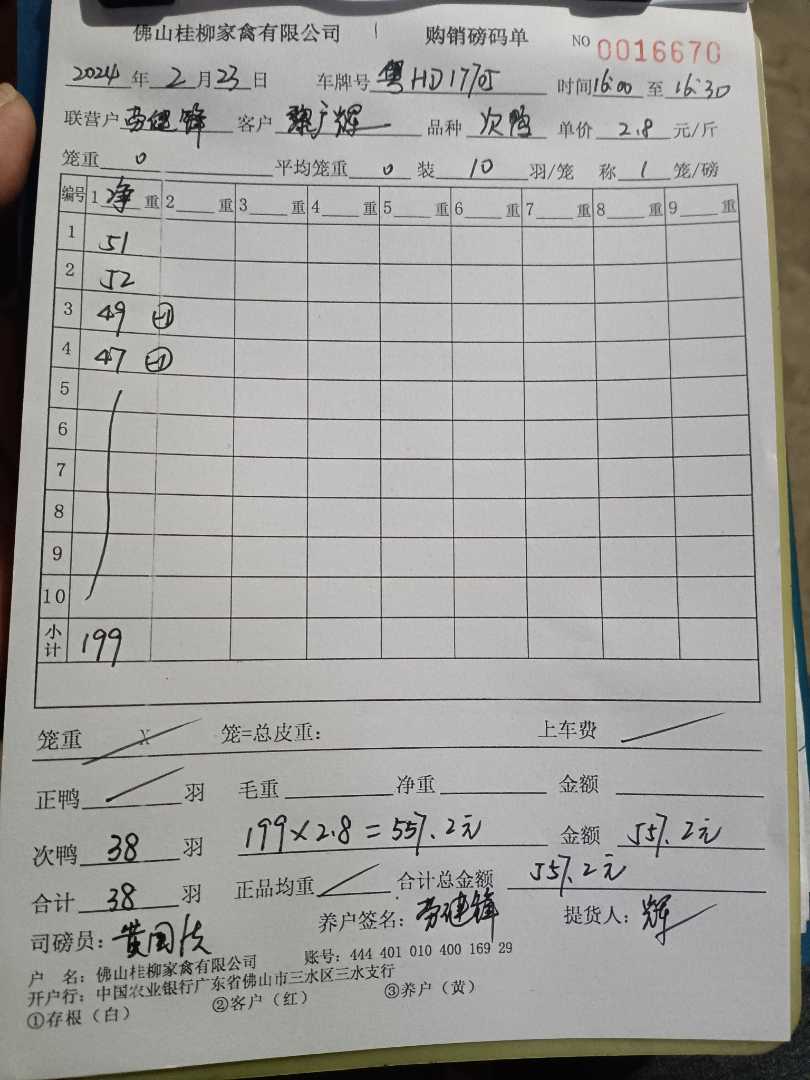 佛山桂柳家禽有限公司 购销磅码单 NO 0016670
2024 年 2 月 23 日 车牌号 粤HD1770J 时间 16:00 至 16:30
联营户 劳健锋 客户 广辉 品种 次鸭 单价 2.8 元/斤
笼重 0 平均笼重 0 装 10 羽/笼 称 1 笼/磅
编号 1 净 重 2 重 3 重 4 重 5 重 6 重 7 重 8 重 9 重
1 51
2 52
3 49 -1
4 47 -1
5
6
7
8
9
10
小计 199
笼重 X 笼=总皮重： 上车费
正鸭 羽 毛重 净重 金额
次鸭 38 羽 199×2.8=557.2元 金额 557.2元
合计 38 羽 正品均重 合计总金额 557.2元
司磅员：黄国 养户签名：劳健锋 提货人：辉
户 名：佛山桂柳家禽有限公司 账号：444 401 010 400 169 29
开户行：中国农业银行广东省佛山市三水区三水支行
①存根（白） ②客户（红） ③养户（黄）